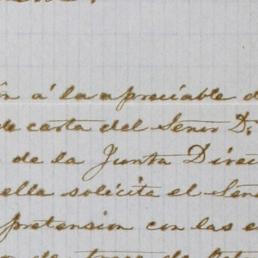 á la apreciable
de carta del Señor D.
de la Junta Direc
ella solicita el Señ
pretension con las